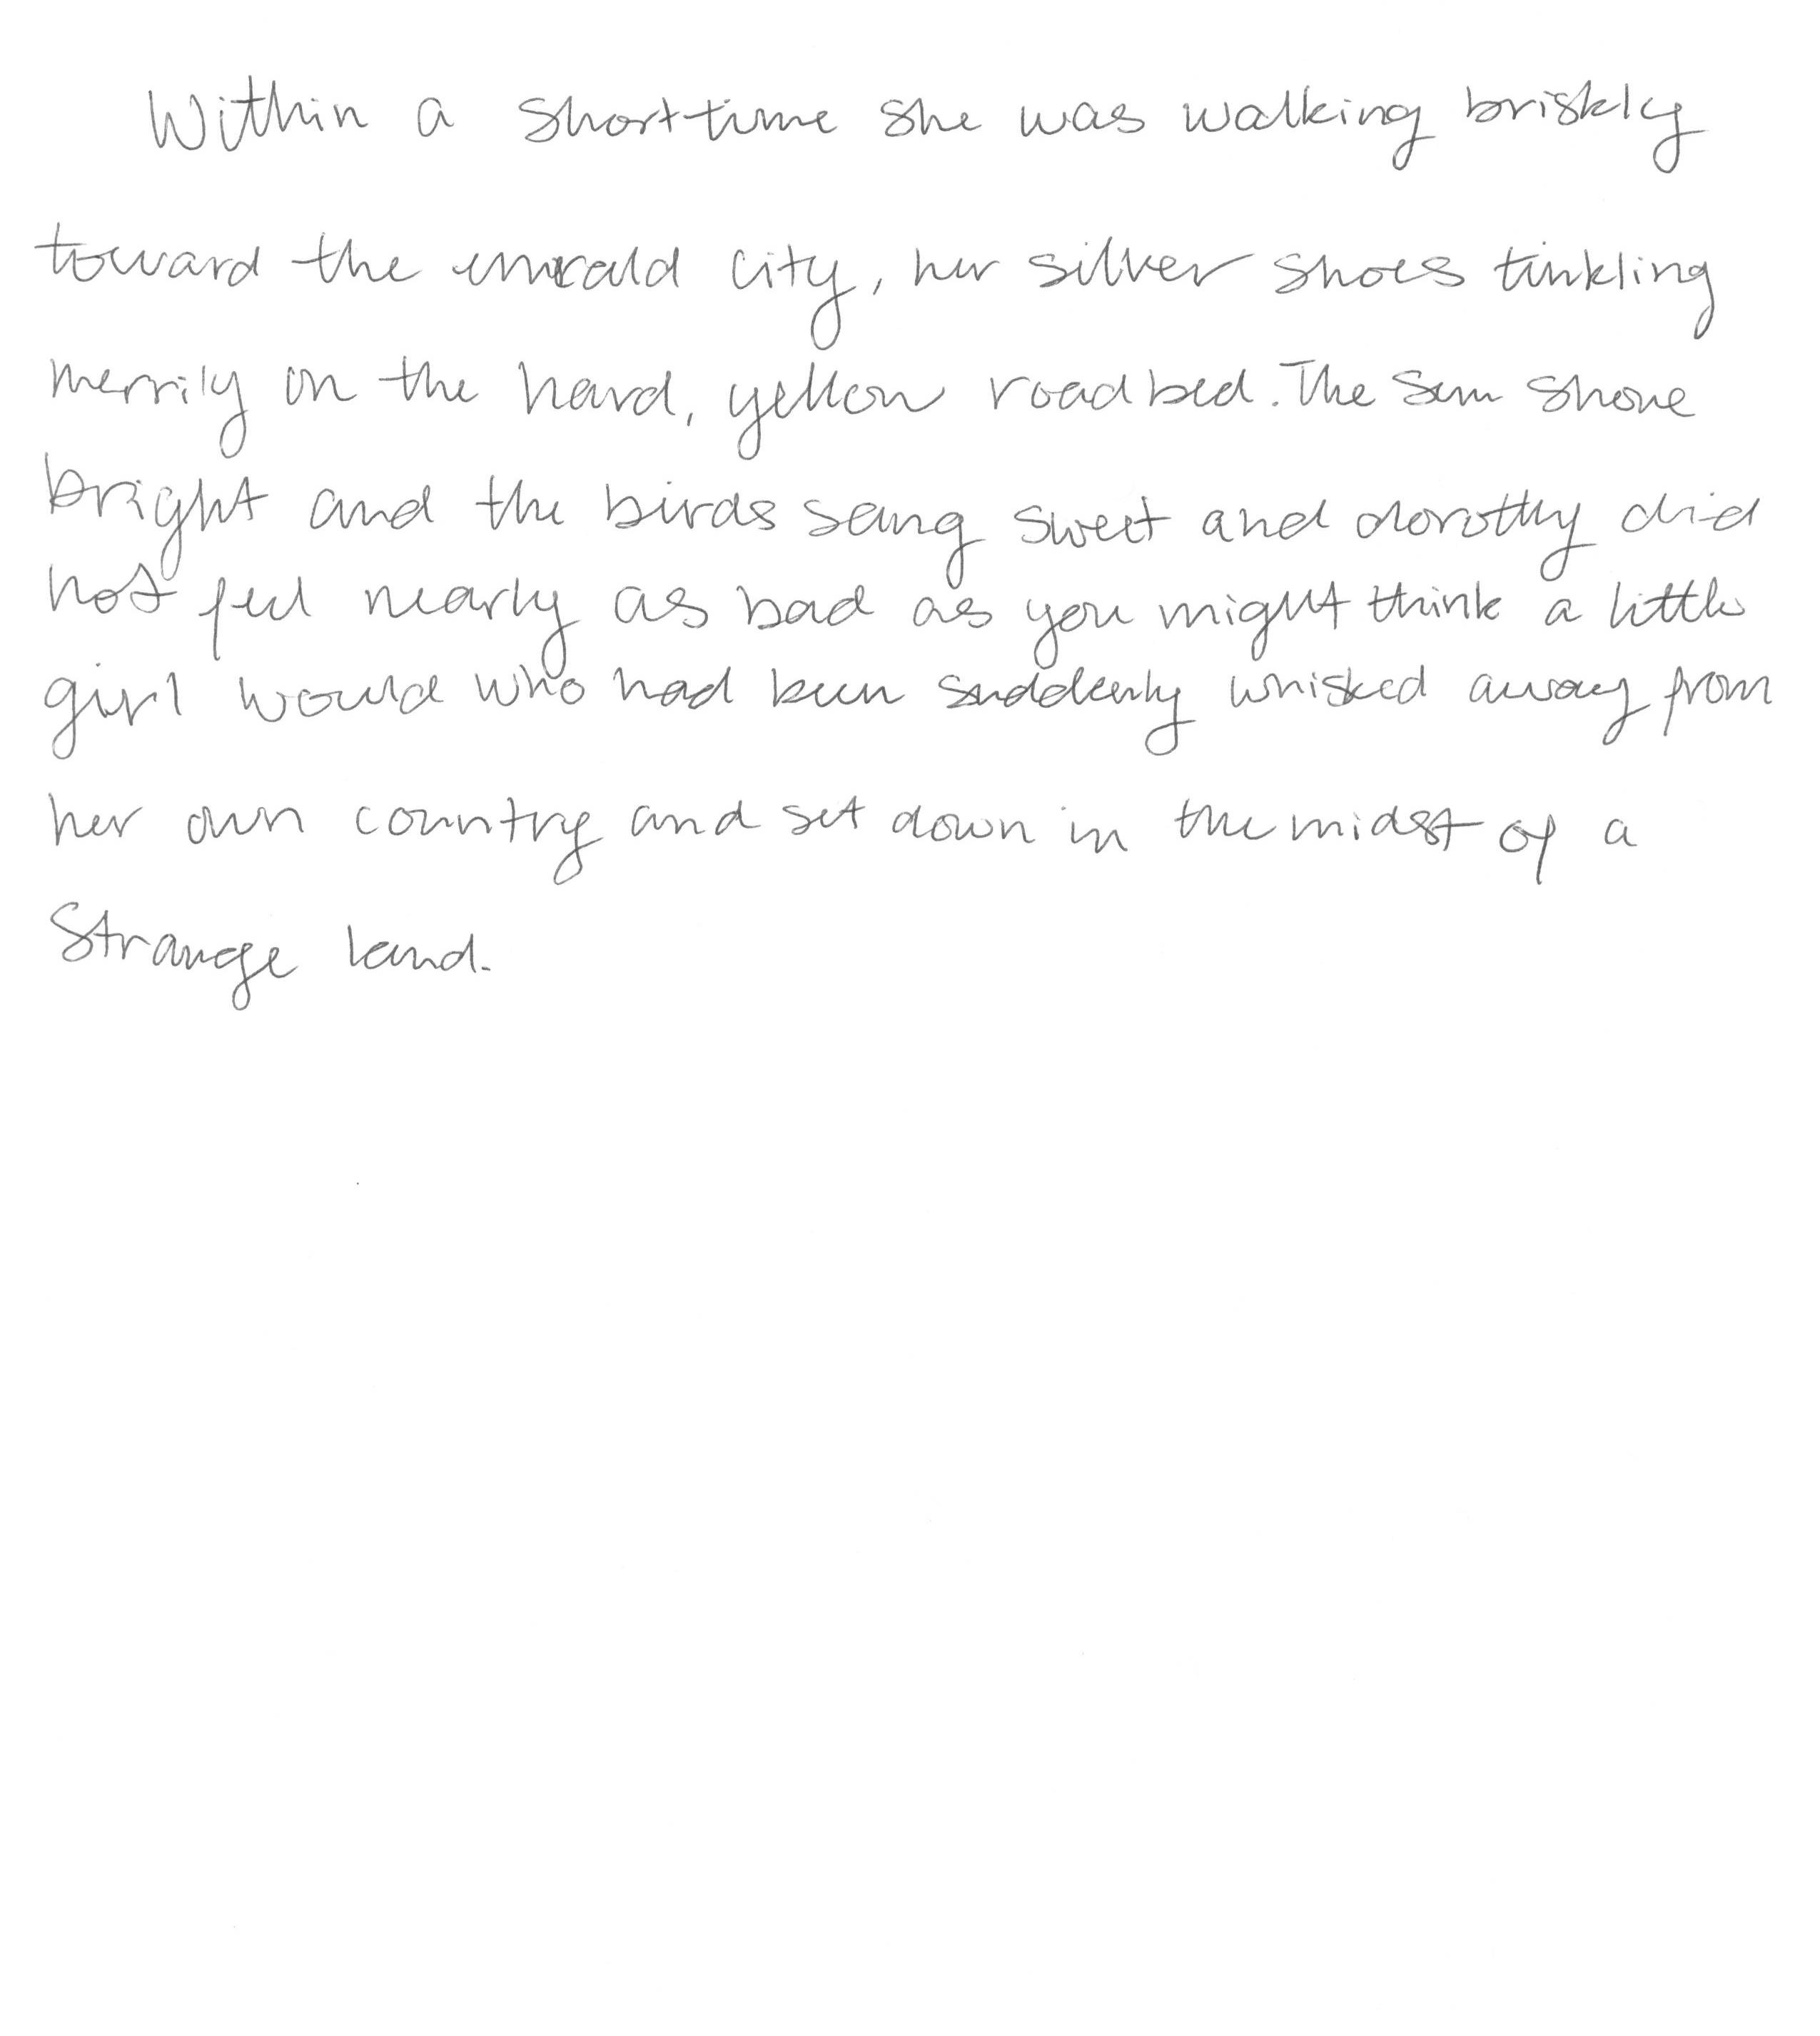 Within a short time she was walking briskly
toward the emerald city, her silver shoes tinkling
merrily on the hard, yellow roadbed. The sun shone
bright and the birds sang sweet and dorothy did
not feel nearly as bad as you might think a little
girl would who had been suddenly whisked away from
her own country and set down in the midst of a
Strange land.